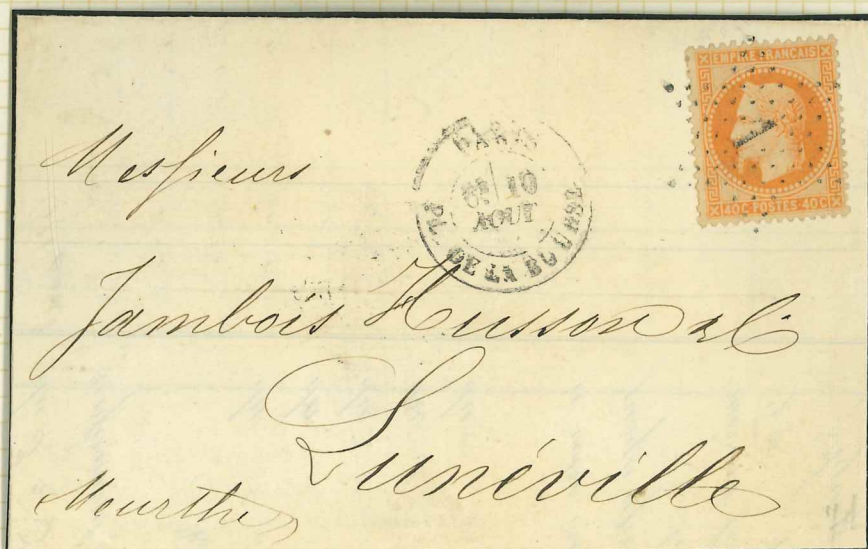 EMPIRE FRANÇAIS
40C POSTES 40C
1
PARIS
10
AOUT
PL. DE LA BOURSE
Messieurs
Jambois Husson & Cⁱᵉ
Lunéville
Meurthe